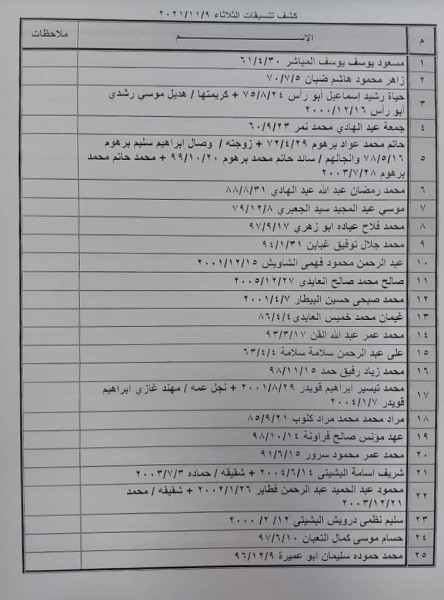 كشف تنسيقات الثلاثاء ٢٠٢١/١١/٩
م الإسم ملاحظات
١ مسعود يوسف يوسف المباشر ٦١/٤/٣٠
٢ زاهر محمود هاشم ضبان ٧٠/٧/٥
٣ حياة رشيد إسماعيل أبو رأس ٧٥/٨/٢٤ + كريمتها / هديل موسي رشدي
أبو رأس ٢٠٠٠/١٢/١٦
٤ جمعة عبد الهادي محمد نمر ٦٠/٩/٢٣
٥ حاتم محمد عواد برهوم ٧٢/٤/٢٩ + زوجته / وصال ابراهيم سليم برهوم
٧٨/٥/١٦ وانجالهم / سائد حاتم محمد برهوم ٩٩/١٠/٢٠ + محمد حاتم محمد
برهوم ٢٠٠٣/٧/٢٨
٦ محمد رمضان عبد الله عبد الهادي ٨٨/٨/٣١
٧ موسي عبد المجيد سيد الجعبري ٧٩/١٢/٨
٨ محمد فلاح عياده ابو زهري ٩٧/٩/١٧
٩ محمد جلال توفيق غباين ٩٤/١/٣١
١٠ عبد الرحمن محمود فهمى الشاويش ٢٠٠١/١٢/١٥
١١ صالح محمد صالح العايدى ٢٠٠٥/١٢/٢٧
١٢ محمد صبحى حسين البيطار ٢٠٠١/٤/٧
١٣ غيمان محمد خميس العايدى ٨٦/٤/٤
١٤ محمد عمر عبد الله القن ٩٣/٣/١٧
١٥ على عبد الرحمن سلامة سلامة ٦٣/٤/٤
١٦ محمد زياد رفيق حمد ٩٨/١١/١٥
١٧ محمد تيسير ابراهيم قويدر ٢٠٠١/٨/٢٩ + نجل عمه / مهند غازي ابراهيم
قويدر ٢٠٠٤/١/٧
١٨ مراد محمد محمد مراد كلوب ٨٥/٩/٢١
١٩ عهد مؤنس صالح فراونة ٩٨/١٠/١٤
٢٠ محمد عمر محمود سرور ٩١/٦/١٥
٢١ شريف اسامة البشيتى ٢٠٠٤/٦/١٤ + شقيقه / حماده ٢٠٠٣/٧/٣
٢٢ محمود عبد الحميد عبد الرحمن فطاير ٢٠٠٢/١/٢٦ + شقيقه / محمد
٢٠٠٣/١٢/٢١
٢٣ سليم نظمى درويش البشيتى ١٢/ ٢/ ٢٠٠٠
٢٤ حسام موسي كمال التعبان ٩٧/٦/١٠
٢٥ محمد حموده سليمان ابو عميرة ٩٦/١٢/٩